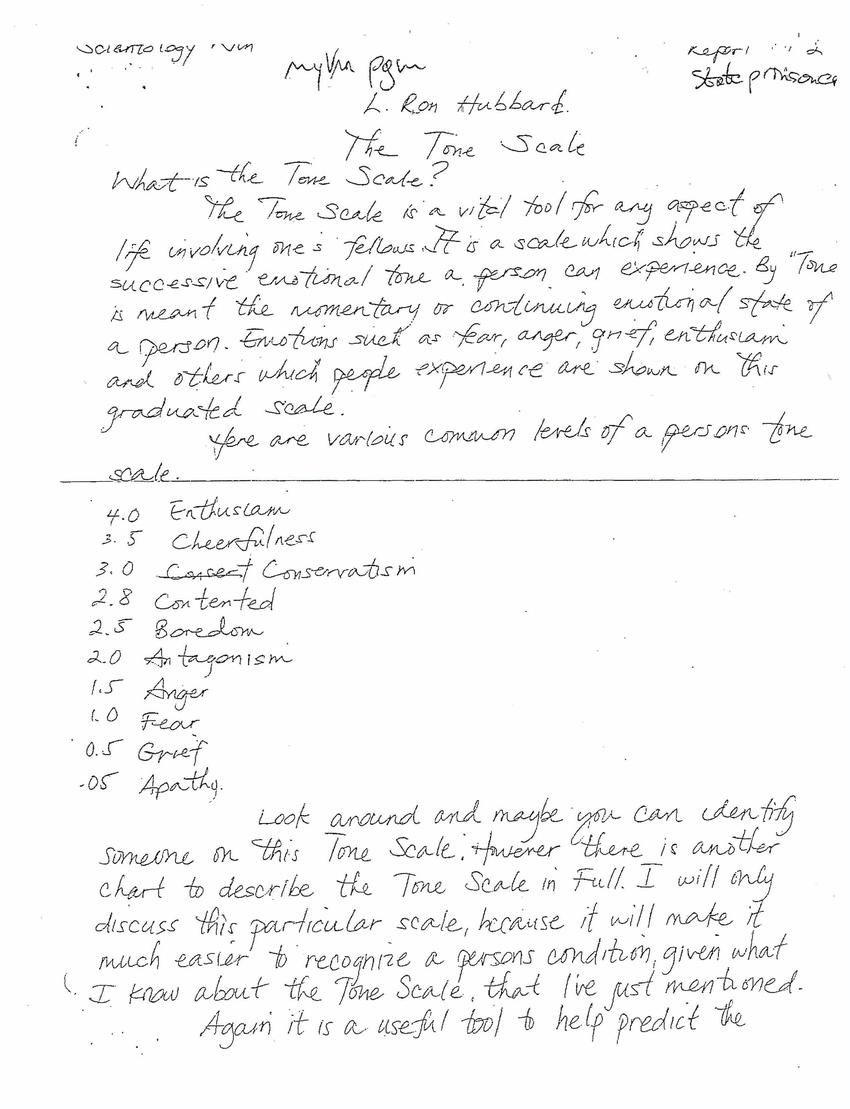 Scientology
Report 2
State prison
pgm
L. Ron Hubbard.
The Tone Scale
What is the Tone Scale?
The Tone Scale is a vital tool for any aspect of
life involving one's fellows. It is a scale which shows the
successive emotional tone a person can experience. By "Tone
is meant the momentary or continuing emotional state of
a person. Emotions such as fear, anger, grief, enthusiam
and others which people experience are shown on this
graduated scale.
Here are various common levels of a persons tone
scale.
4.0 Enthusiam
3.5 Cheerfulness
3.0 Conservatism
2.8 Contented
2.5 Boredom
2.0 Antagonism
1.5 Anger
1.0 Fear
0.5 Grief
.05 Apathy.
Look around and maybe you can identify
someone on this Tone Scale. However there is another
chart to describe the Tone Scale in Full. I will only
discuss this particular scale, because it will make it
much easier to recognize a persons condition, given what
I know about the Tone Scale, that I've just mentioned.
Again it is a useful tool to help predict the